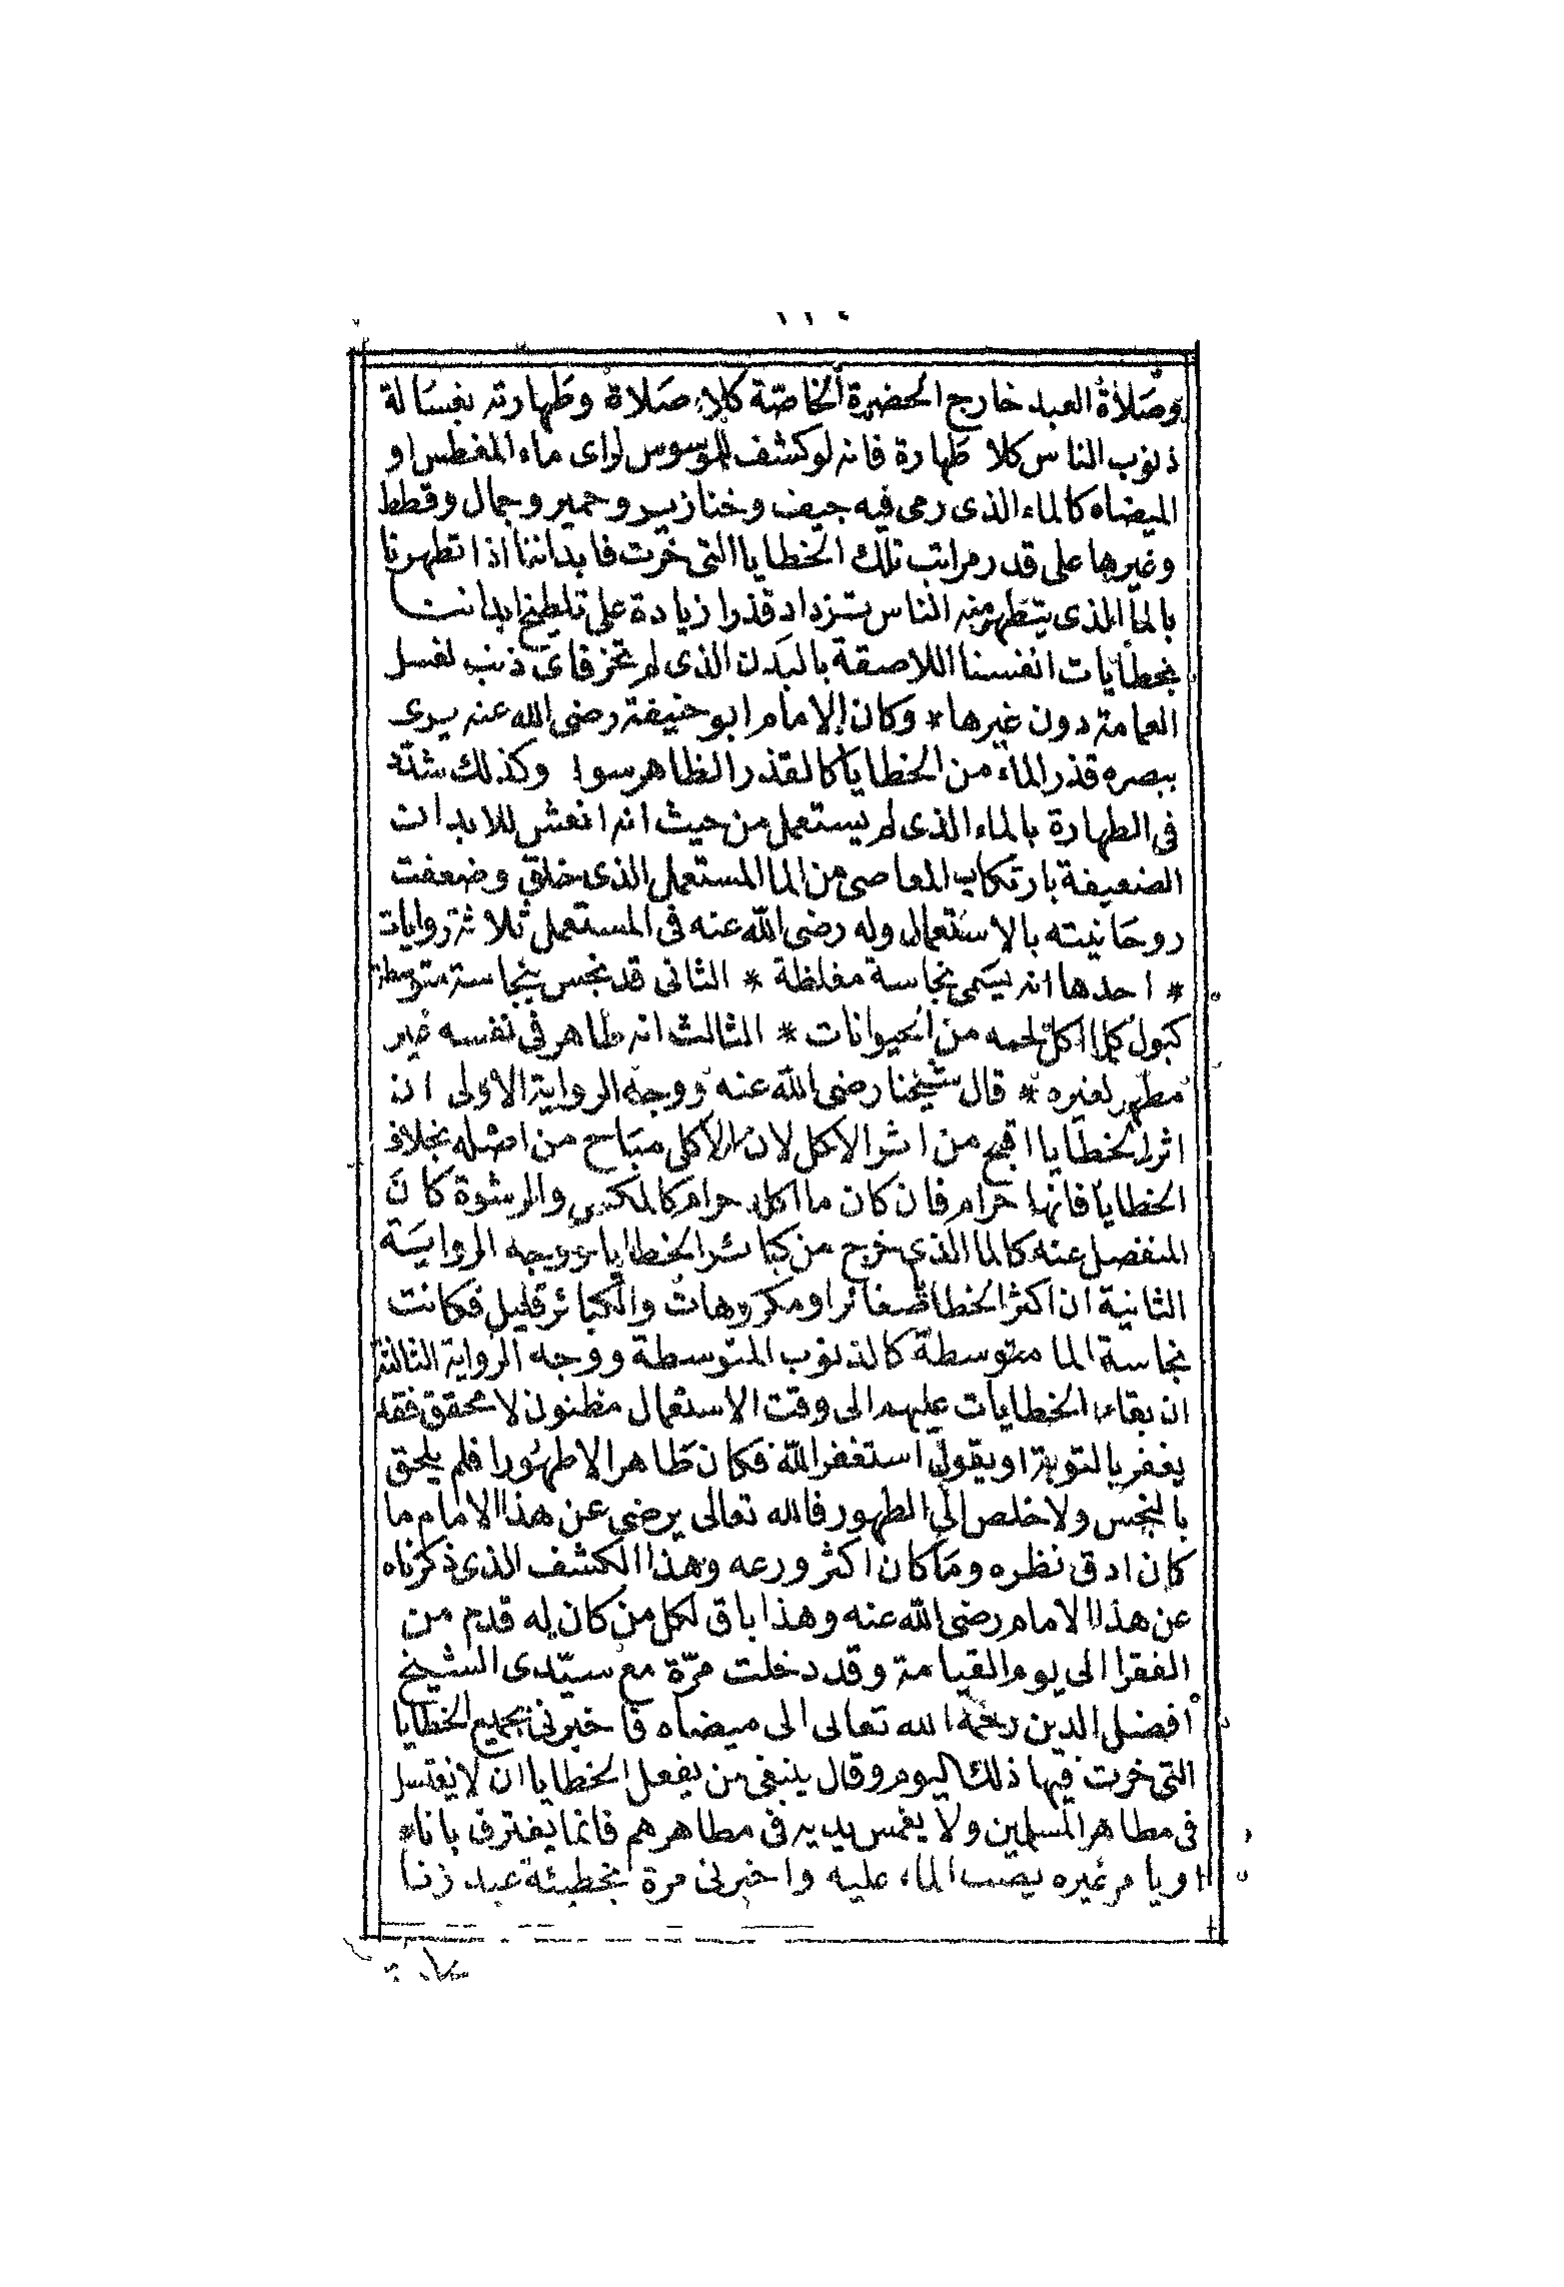 وصلاة العبد خارج الحضرة الخاصة كلا صلاة وطهارته بغسالة
ذنوب الناس كلا طهارة فانه لو كشف للموسوس لراى ماء المغطس او
الميضاه كالماء الذى رمى فيه جيف وخنازير وحمير وجمال وقطط
وغيرها على قدر مراتب تلك الخطايا التى خرت فابداننا اذا تطهرنا
بالماء الذى يتطهر منه الناس تزداد قذرا زيادة على تلطيخ ابداننا
بخطايات انفسنا اللاصقة بالبدن الذى لم تخر فاى ذنب لغسل
العمامة دون غيرها * وكان الامام ابو حنيفة رضى الله عنه يرى
ببصره قذر الماء من الخطايا كالقذر الظاهر سوا وكذلك شدّد
فى الطهارة بالماء الذى لم يستعمل من حيث انه انعش للابدان
الضعيفة بارتكاب المعاصى من الما المستعمل الذى خلق وضعفت
روحانيته بالاستعمال وله رضى الله عنه فى المستعمل ثلاثة روايات
* احدها انه يسمى نجاسة مغلظة * الثانى قد نجس بنجاسة متوسطة
كبول كلما اكل لحمه من الحيوانات * الثالث انه طاهر فى نفسه غير
مطهر لغيره * قال شيخنا رضى الله عنه ووجه الرواية الاولى ان
اثر الخطايا اقبح من اثر الاكل لان الاكل مباح من اصله بخلاف
الخطايا فانها حرام فان كان ما اكل حرام كالمكس والرشوة كان
المنفصل عنه كالما الذى خرج من كبائر الخطايا ووجه الرواية
الثانية ان اكثر الخطايا صغائرا ومكروهات والكبائر قليل فكانت
نجاسة الما متوسطة كالذنوب المتوسطة ووجه الرواية الثالثة
ان بقاء الخطايات عليهم الى وقت الاستعمال مظنون لا محقق فقد
يغفر بالتوبة او بقول استغفر الله فكان طاهرا لا طهورا فلم يلحق
بالنجس ولا خلص الى الطهور فالله تعالى يرضى عن هذا الامام ما
كان ادق نظره وما كان اكثر ورعه وهذا الكشف الذى ذكرناه
عن هذا الامام رضى الله عنه وهذا باق لكل من كان له قدم من
الفقرا الى يوم القيامة وقد دخلت مرّة مع سيّدى الشيخ
افضل الدين رحمه الله تعالى الى ميضاه فاخبرنى بجميع الخطايا
التى خرت فيها ذلك اليوم وقال ينبغى من يفعل الخطايا ان لا يغتسل
فى مطاهر المسلمين ولا يغمس يديه فى مطاهرهم فانما يغترف باناء
او يامر غيره يصب الماء عليه واخبرنى مرة بخطيئة عبد زنا